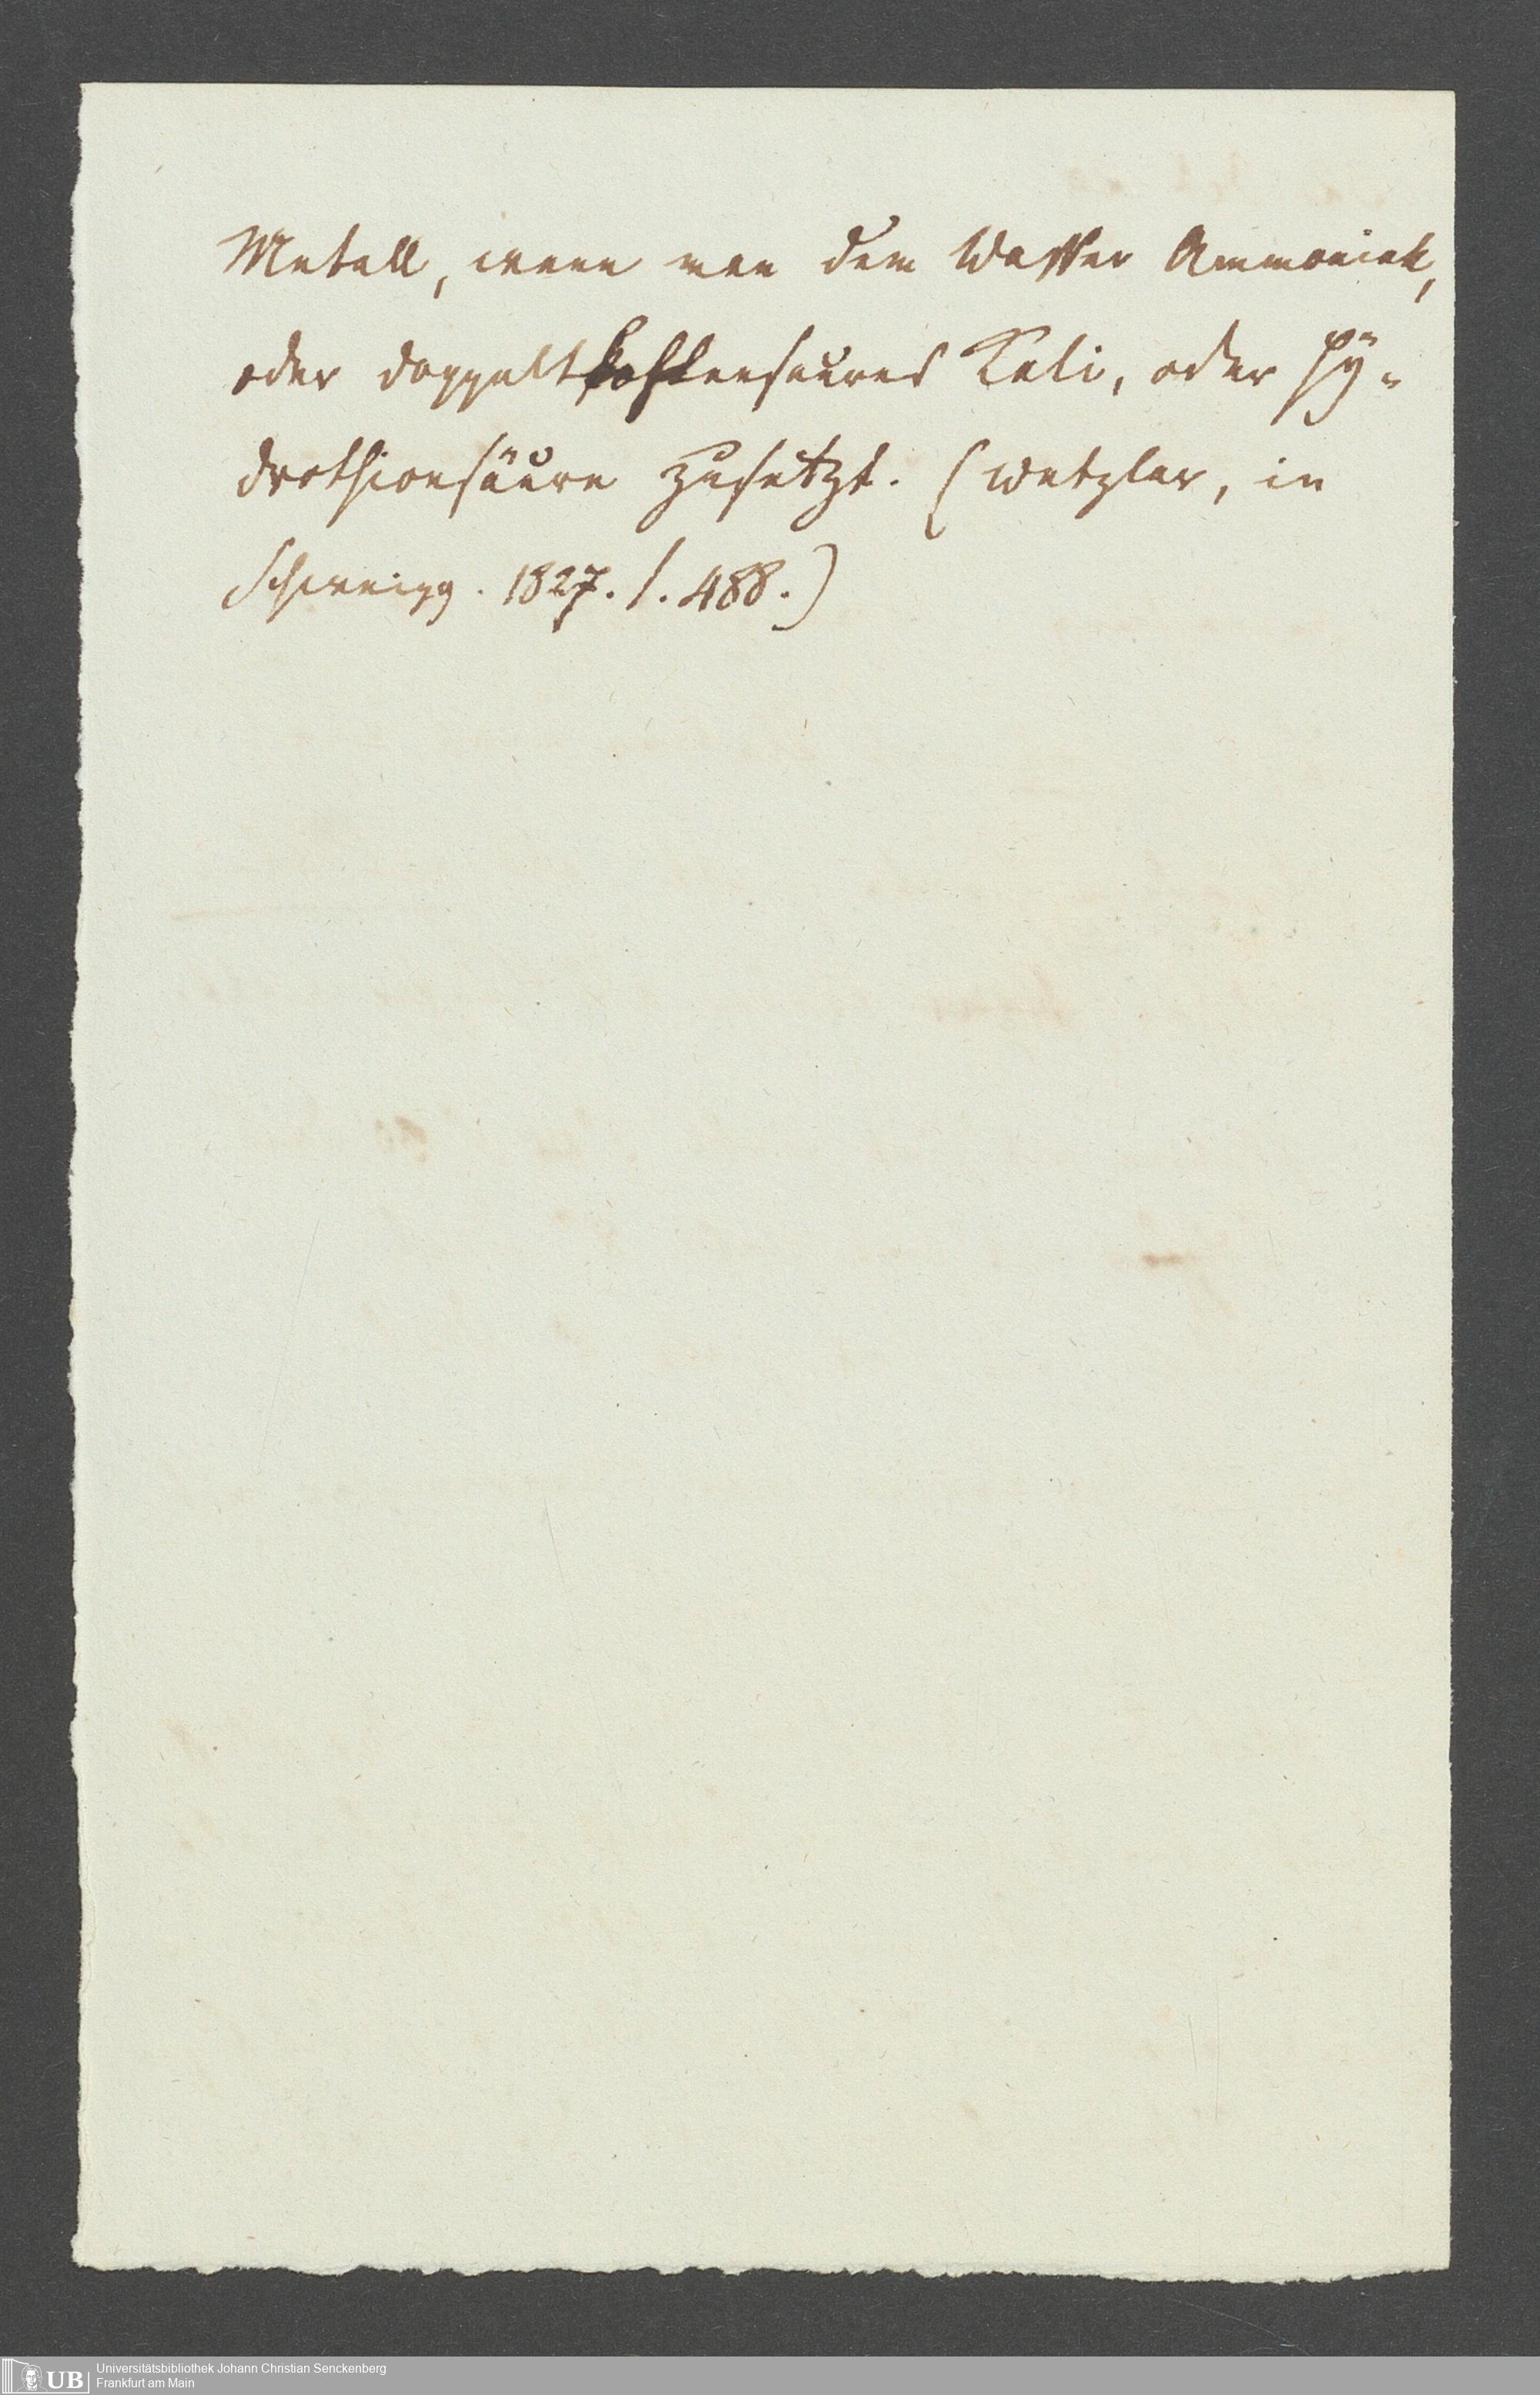 Metall, wenn man dem Wasser Ammoniak,
oder doppeltkohlensaures Kali, oder Hÿ-
drothionsäure zusetzt. (Wetzlar, in
Schweigg. 1827. /. 488.)
UB
Universitätsbibliothek Johann Christian Senckenberg
Frankfurt am Main